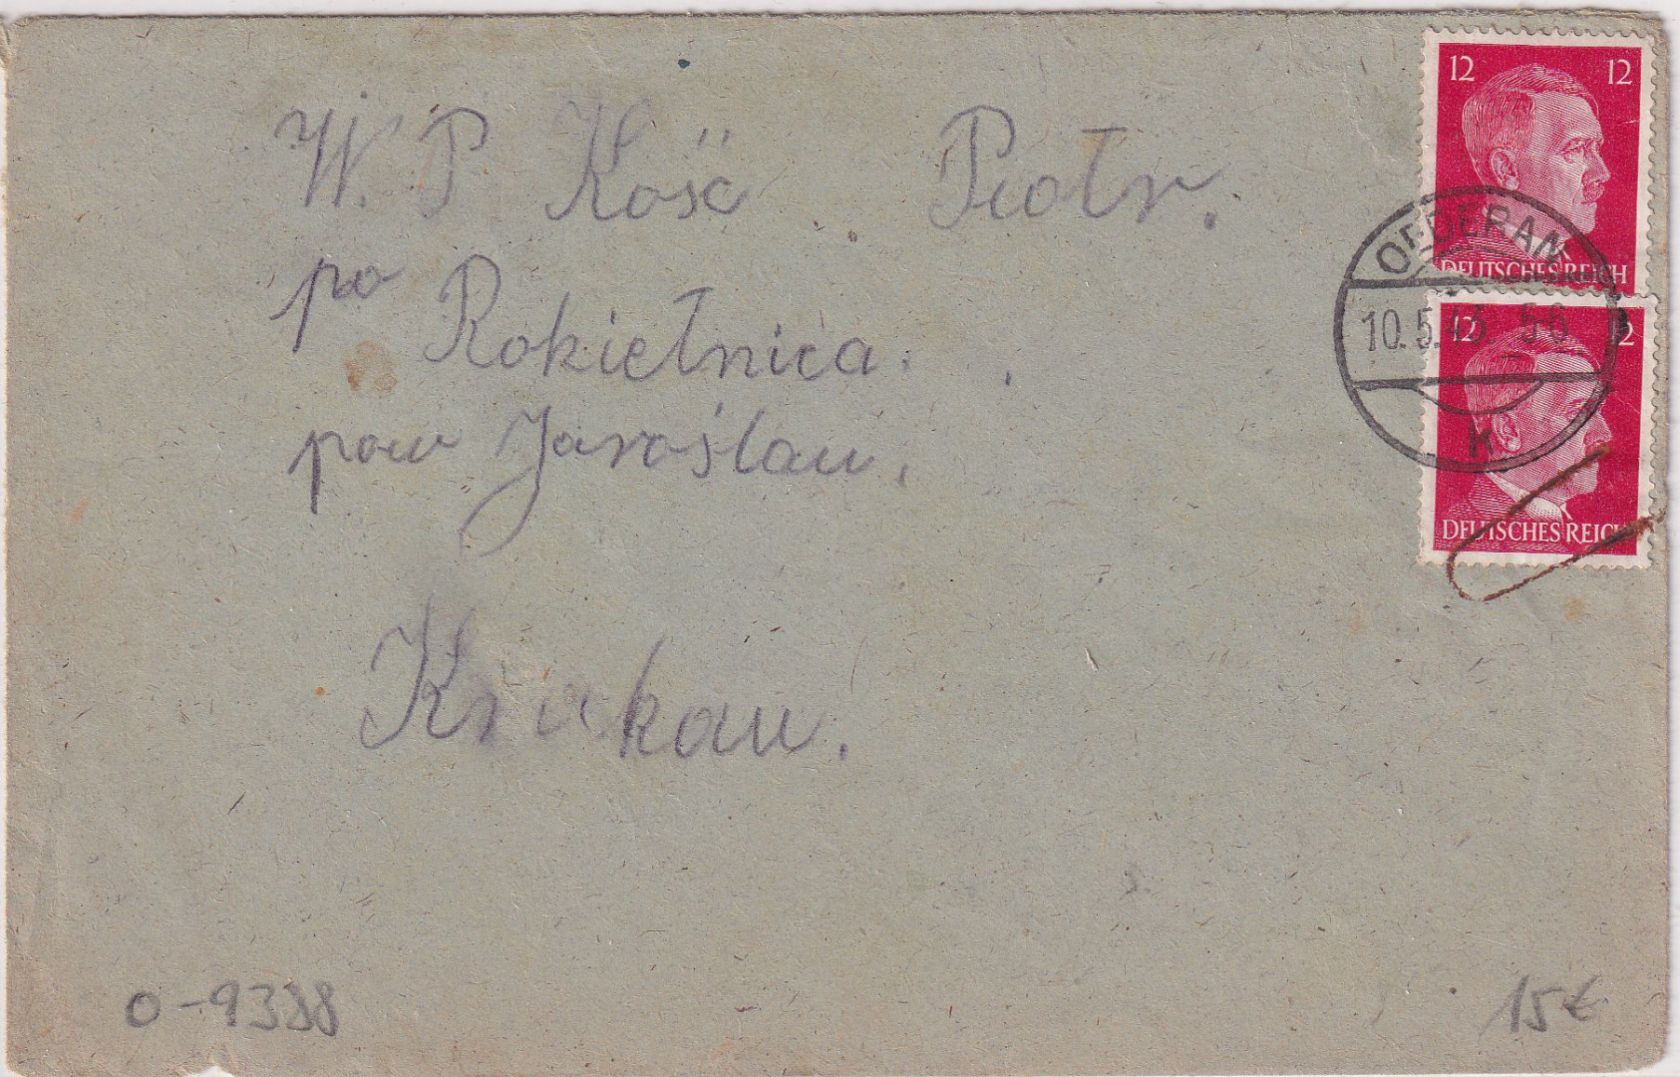 W. P Kość Piotr.
po Rokietnica.
pow Jarosłau.
Krakau.
12 12
DEUTSCHES REICH
OEDERAN
10.5.43
12 12
DEUTSCHES REICH
k
0-9338
15€